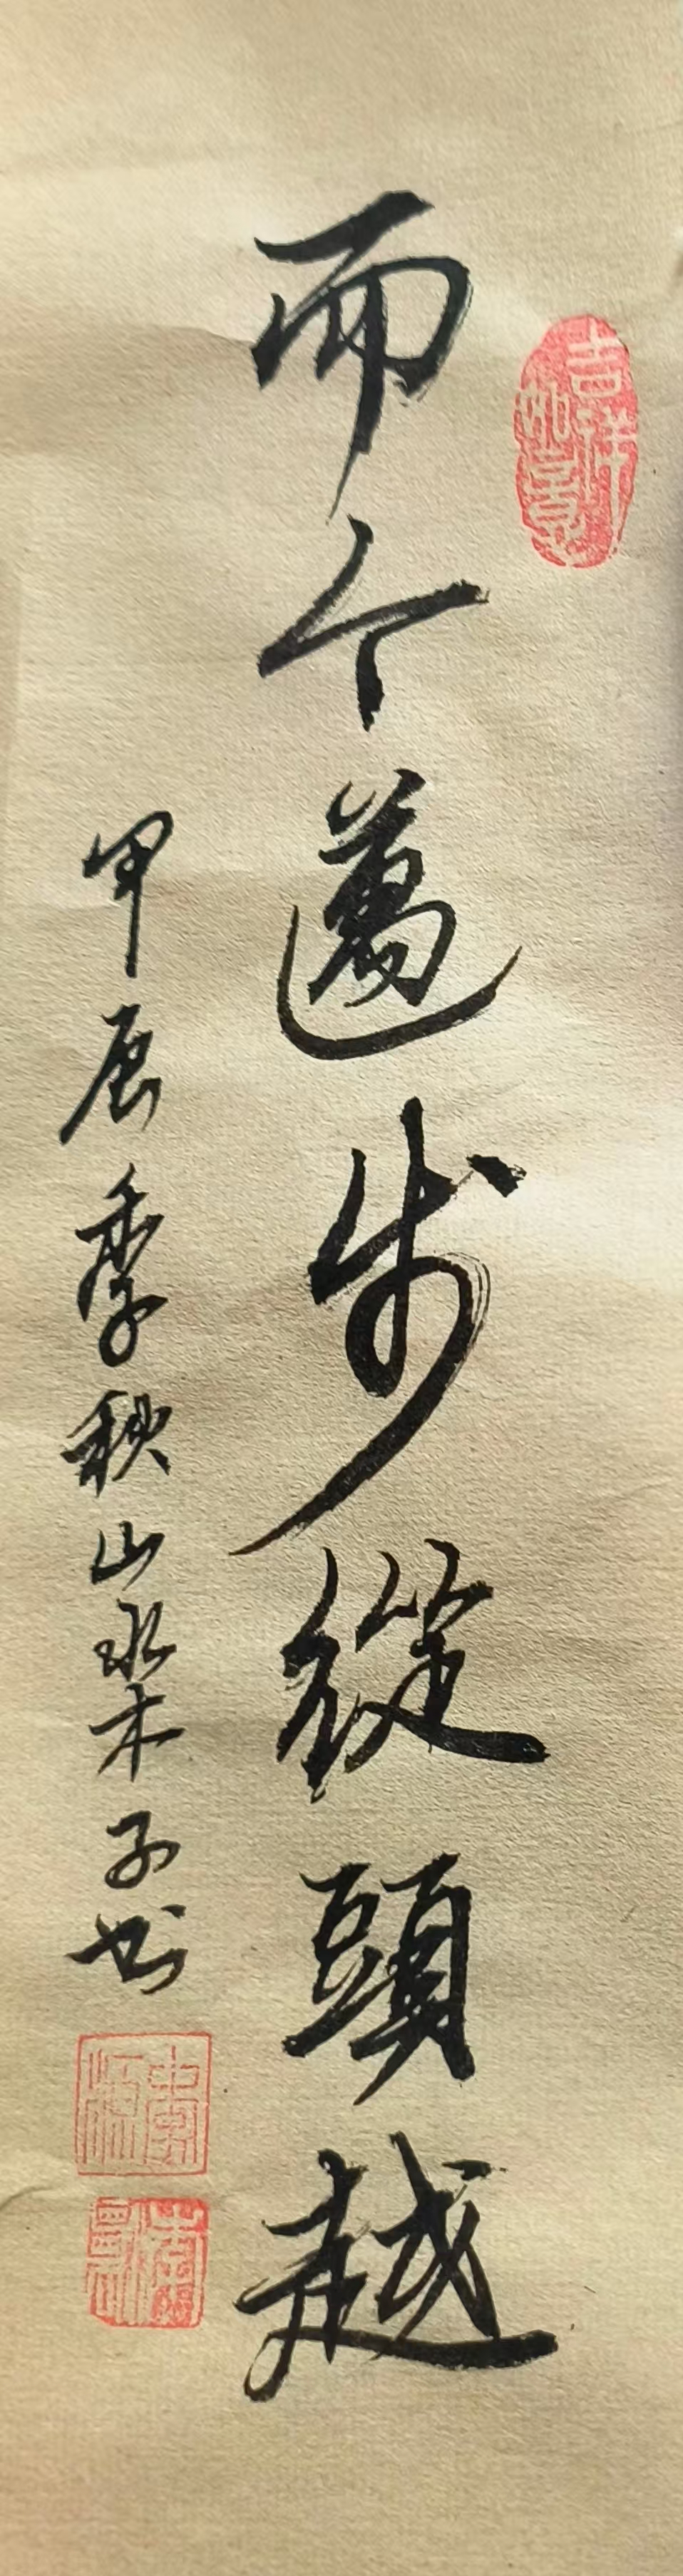 吉祥如意
而今邁步從頭越
甲辰季秋山水木子书